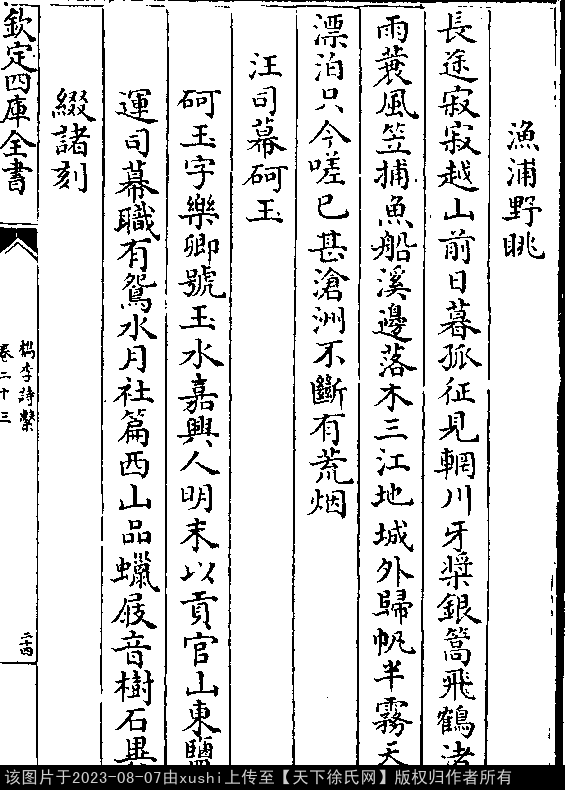 漁浦野眺
長途寂寂越山前日暮孤征見輞川牙槳銀篙飛鶴渚
雨蓑風笠捕魚船溪邊落木三江地城外歸帆半霧天
漂泊只今嗟已甚滄洲不斷有荒烟
汪司幕砢玉
砢玉字樂卿號玉水嘉興人明末以貢官山東鹽
運司幕職有鴛水月社篇西山品蠟屐音樹石
綴諸刻
欽定四庫全書
檇李詩繫
卷二十三
二十四
该图片于2023-08-07由xushi上传至【天下徐氏网】版权归作者所有